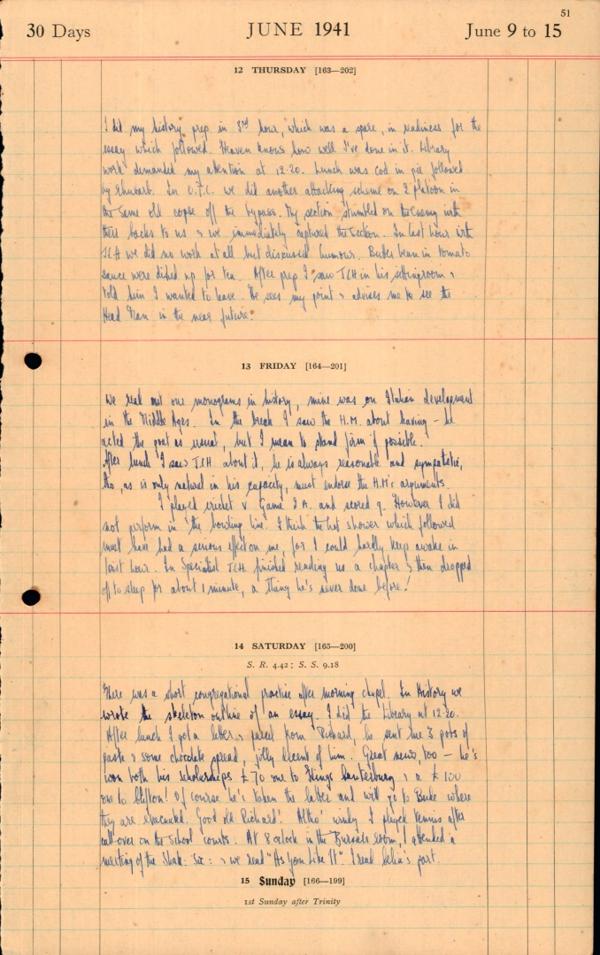 51
30 Days JUNE 1941 June 9 to 15
12 THURSDAY [163—202]
I did my history prep in 3rd hour, which was a spare, in readiness for the
essay which followed. Heaven knows how well I've done in it. Library
work demanded my attention at 12.20. Lunch was cod in pie followed
by rhubarb. In O.T.C. we did another attacking scheme on 2 platoon in
the same old copse off the bypass. My section stumbled on the enemy with
their backs to us & we immediately captured the section. In last hour with
JCH we did no work at all but discussed humour. Butter beans in tomato
sauce were dished up for tea. After prep I saw JCH in his sittingroom &
told him I wanted to leave. He sees my point & advises me to see the
Head Man in the near future.
13 FRIDAY [164—201]
We read out our monograms in history, mine was on Italian development
in the Middle Ages. In the break I saw the H.M. about leaving – he
acted the goat as usual, but I mean to stand firm if possible.
After lunch I saw JCH about it, he is always reasonable and sympathetic,
tho, as is only natural in his capacity, must endorse the H.M's arguments.
I played cricket v Game 2A. and scored 9. However I did
not perform in the bowling line. I think the hot shower which followed
must have had a serious effect on me, for I could hardly keep awake in
last hour. In Specialist JCH finished reading us a chapter & then dropped
off to sleep for about 1 minute, a thing he's never done before!
14 SATURDAY [165—200]
S. R. 4.42; S. S. 9.18
There was a short congregational practise after morning chapel. In History we
wrote the skeleton outline of an essay. I did the Library at 12.20.
After lunch I got a letter & parcel from Richard, he sent me 3 pots of
paste & some chocolate spread, jolly decent of him. Great news, too – he's
won both his scholarships £70 one to Kings Canterbury & a £100
one to Clifton! Of course he's taken the latter and will go to Bude where
they are evacuated. Good old Richard! Altho' windy I played tennis after
call-over on the School courts. At 8 oclock in the Bursar's room, I attended a
meeting of the Shak. Soc: & we read "As You Like It". I read Celia's part.
15 Sunday [166—199]
1st Sunday after Trinity